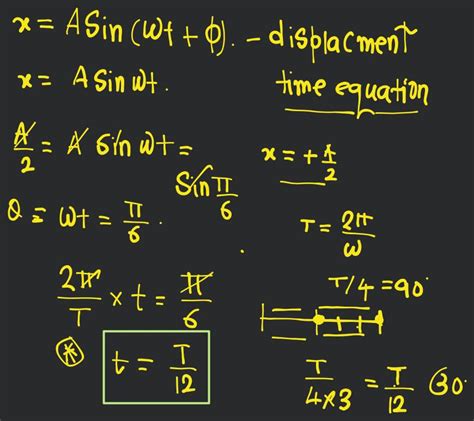 x = A Sin (ωt + φ). - displacment
time equation
x = A Sin ωt.
A/2 = A Sin ωt = Sin π/6
x = + A/2
θ = ωt = π/6.
T = 2π/ω
2π/T × t = π/6
T/4 = 90°
t = T/12
T/4×3 = T/12 30°